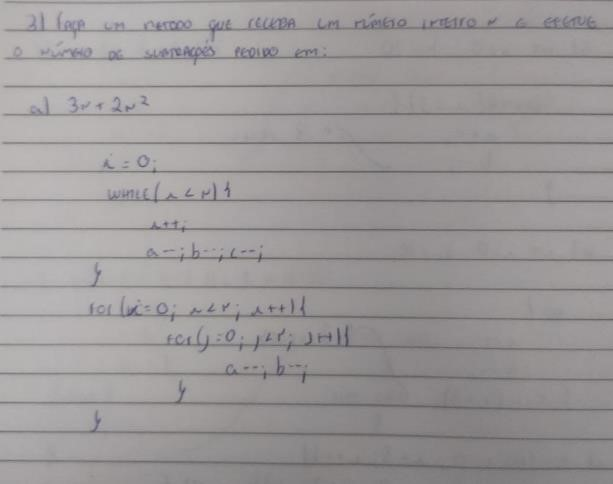 3) FAÇA UM METODO QUE RECEBA UM NÚMERO INTEIRO N E EFETUE
O NÚMERO DE SUBTRAÇÕES PEDIDO EM:
a) 3N + 2N²
i = 0;
WHILE(i < N){
i++;
a--; b--; c--;
}
FOR(i=0; i<N; i++){
FOR(j=0; j<N; j++){
a--; b--;
}
}